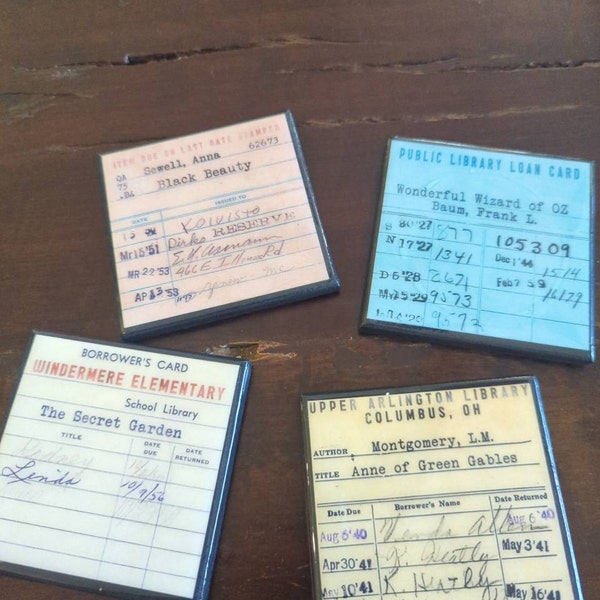 ITEM DUE ON LAST DATE STAMPED
62673
QA
75
.S4
Sewell, Anna
Black Beauty
DATE
ISSUED TO
KOIVISTO
Mr15'51
Dirks RESERVE
MR 22'53
AP 13 53
PUBLIC LIBRARY LOAN CARD
Wonderful Wizard of OZ
Baum, Frank L.
877
105309
N 17'27 1341
Dec 1'44 1514
D 6'28 2671
Feb 7 59 16129
My 15'29 9573
9573
BORROWER'S CARD
WINDERMERE ELEMENTARY
School Library
The Secret Garden
TITLE
DATE DUE
DATE RETURNED
Linda 10/9/56
UPPER ARLINGTON LIBRARY
COLUMBUS, OH
AUTHOR Montgomery, L.M.
TITLE Anne of Green Gables
Date Due
Borrower's Name
Date Returned
Aug 6'40
Aug 6'40
Apr 30'41
May 3'41
May 10'41
May 16'41